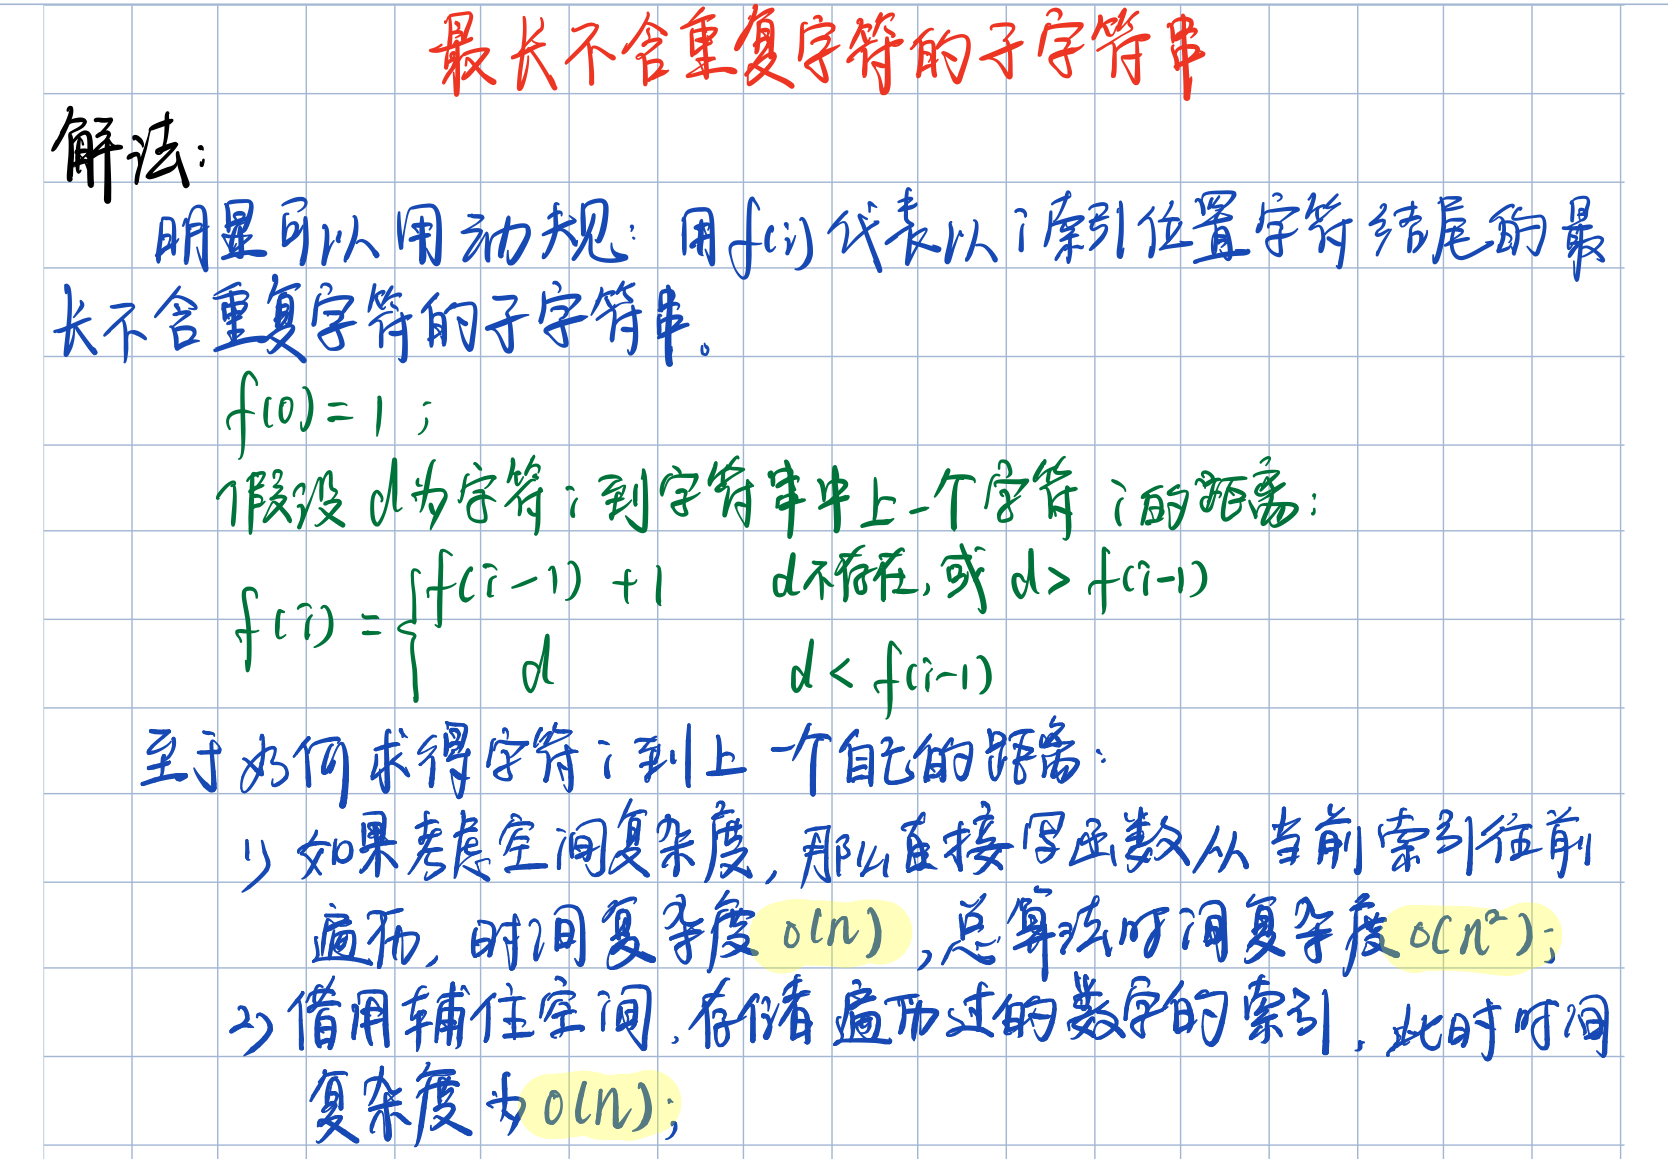 最长不含重复字符的子字符串
解法:
明显可以用动规: 用f(i)代表以i索引位置字符结尾的最
长不含重复字符的子字符串。
f(0)=1;
假设d为字符i到字符串中上一个字符i的距离:
f(i)={f(i-1)+1 d不存在,或d>f(i-1)
d d<f(i-1)
至于如何求得字符i到上一个自己的距离:
1) 如果考虑空间复杂度,那么直接写函数从当前索引往前
遍历,时间复杂度o(n),总算法时间复杂度o(n²);
2) 借用辅住空间,存储着遍历过的数字的索引,此时时间
复杂度为o(n);